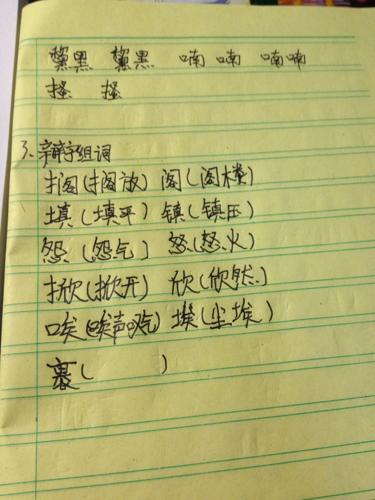 黧黑 黧黑 喃喃 喃喃
搔 搔
3、辩字组词
搁(搁放) 阁(阁楼)
填(填平) 镇(镇压)
怨(怨气) 怒(怒火)
掀(掀开) 欣(欣然)
唉(唉声叹气) 埃(尘埃)
裹( )